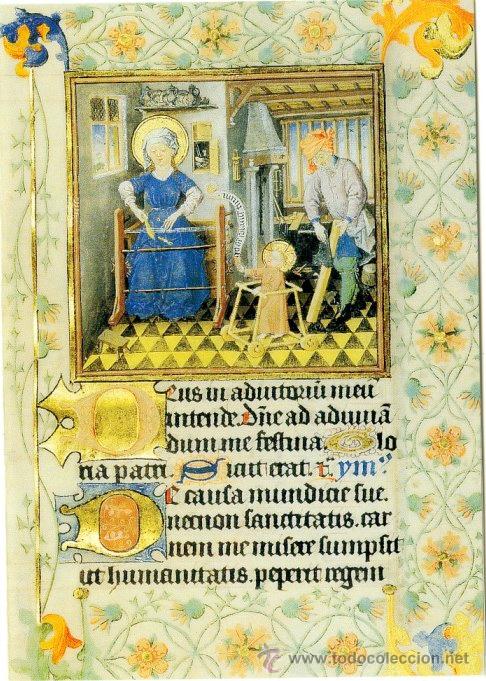 Deus in adiutoriū meū
intende. Dn̄e ad adiuuā
dum me festina. Glo
ria patri. Sicut erat. ym̄
De causa mundicie sue.
necnon sanctitatis. car
nem me misere sumpsit
ut humanitatis. peperit regem
www.todocoleccion.net